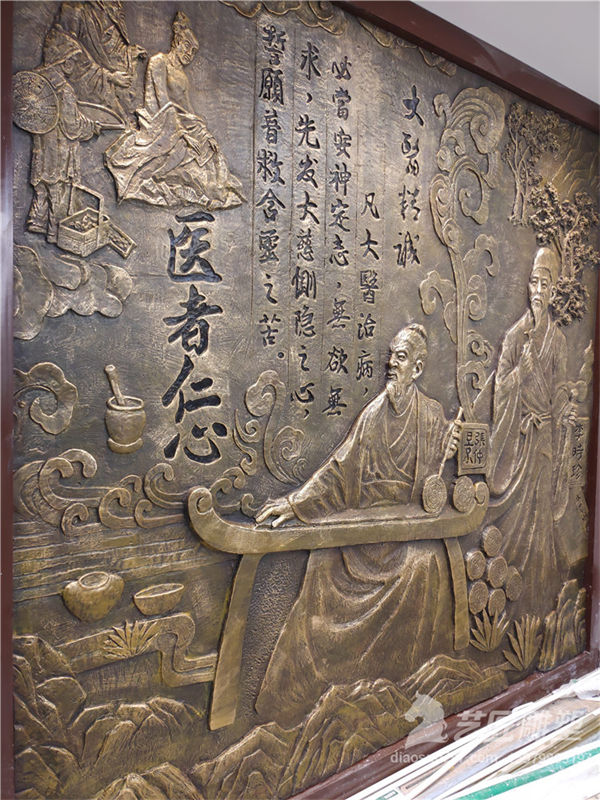 大醫精誠
凡大醫治病，
必當安神定志，無欲無
求，先发大慈惻隐之心，
誓願普救含靈之苦。
医者仁心
張仲景
李時珍
艺匠雕塑